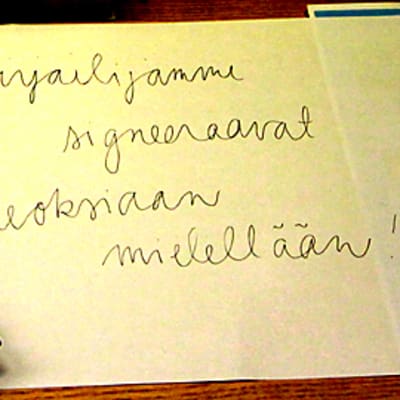 rjailijamme
signeeraavat
eoksiaan
mielellään!